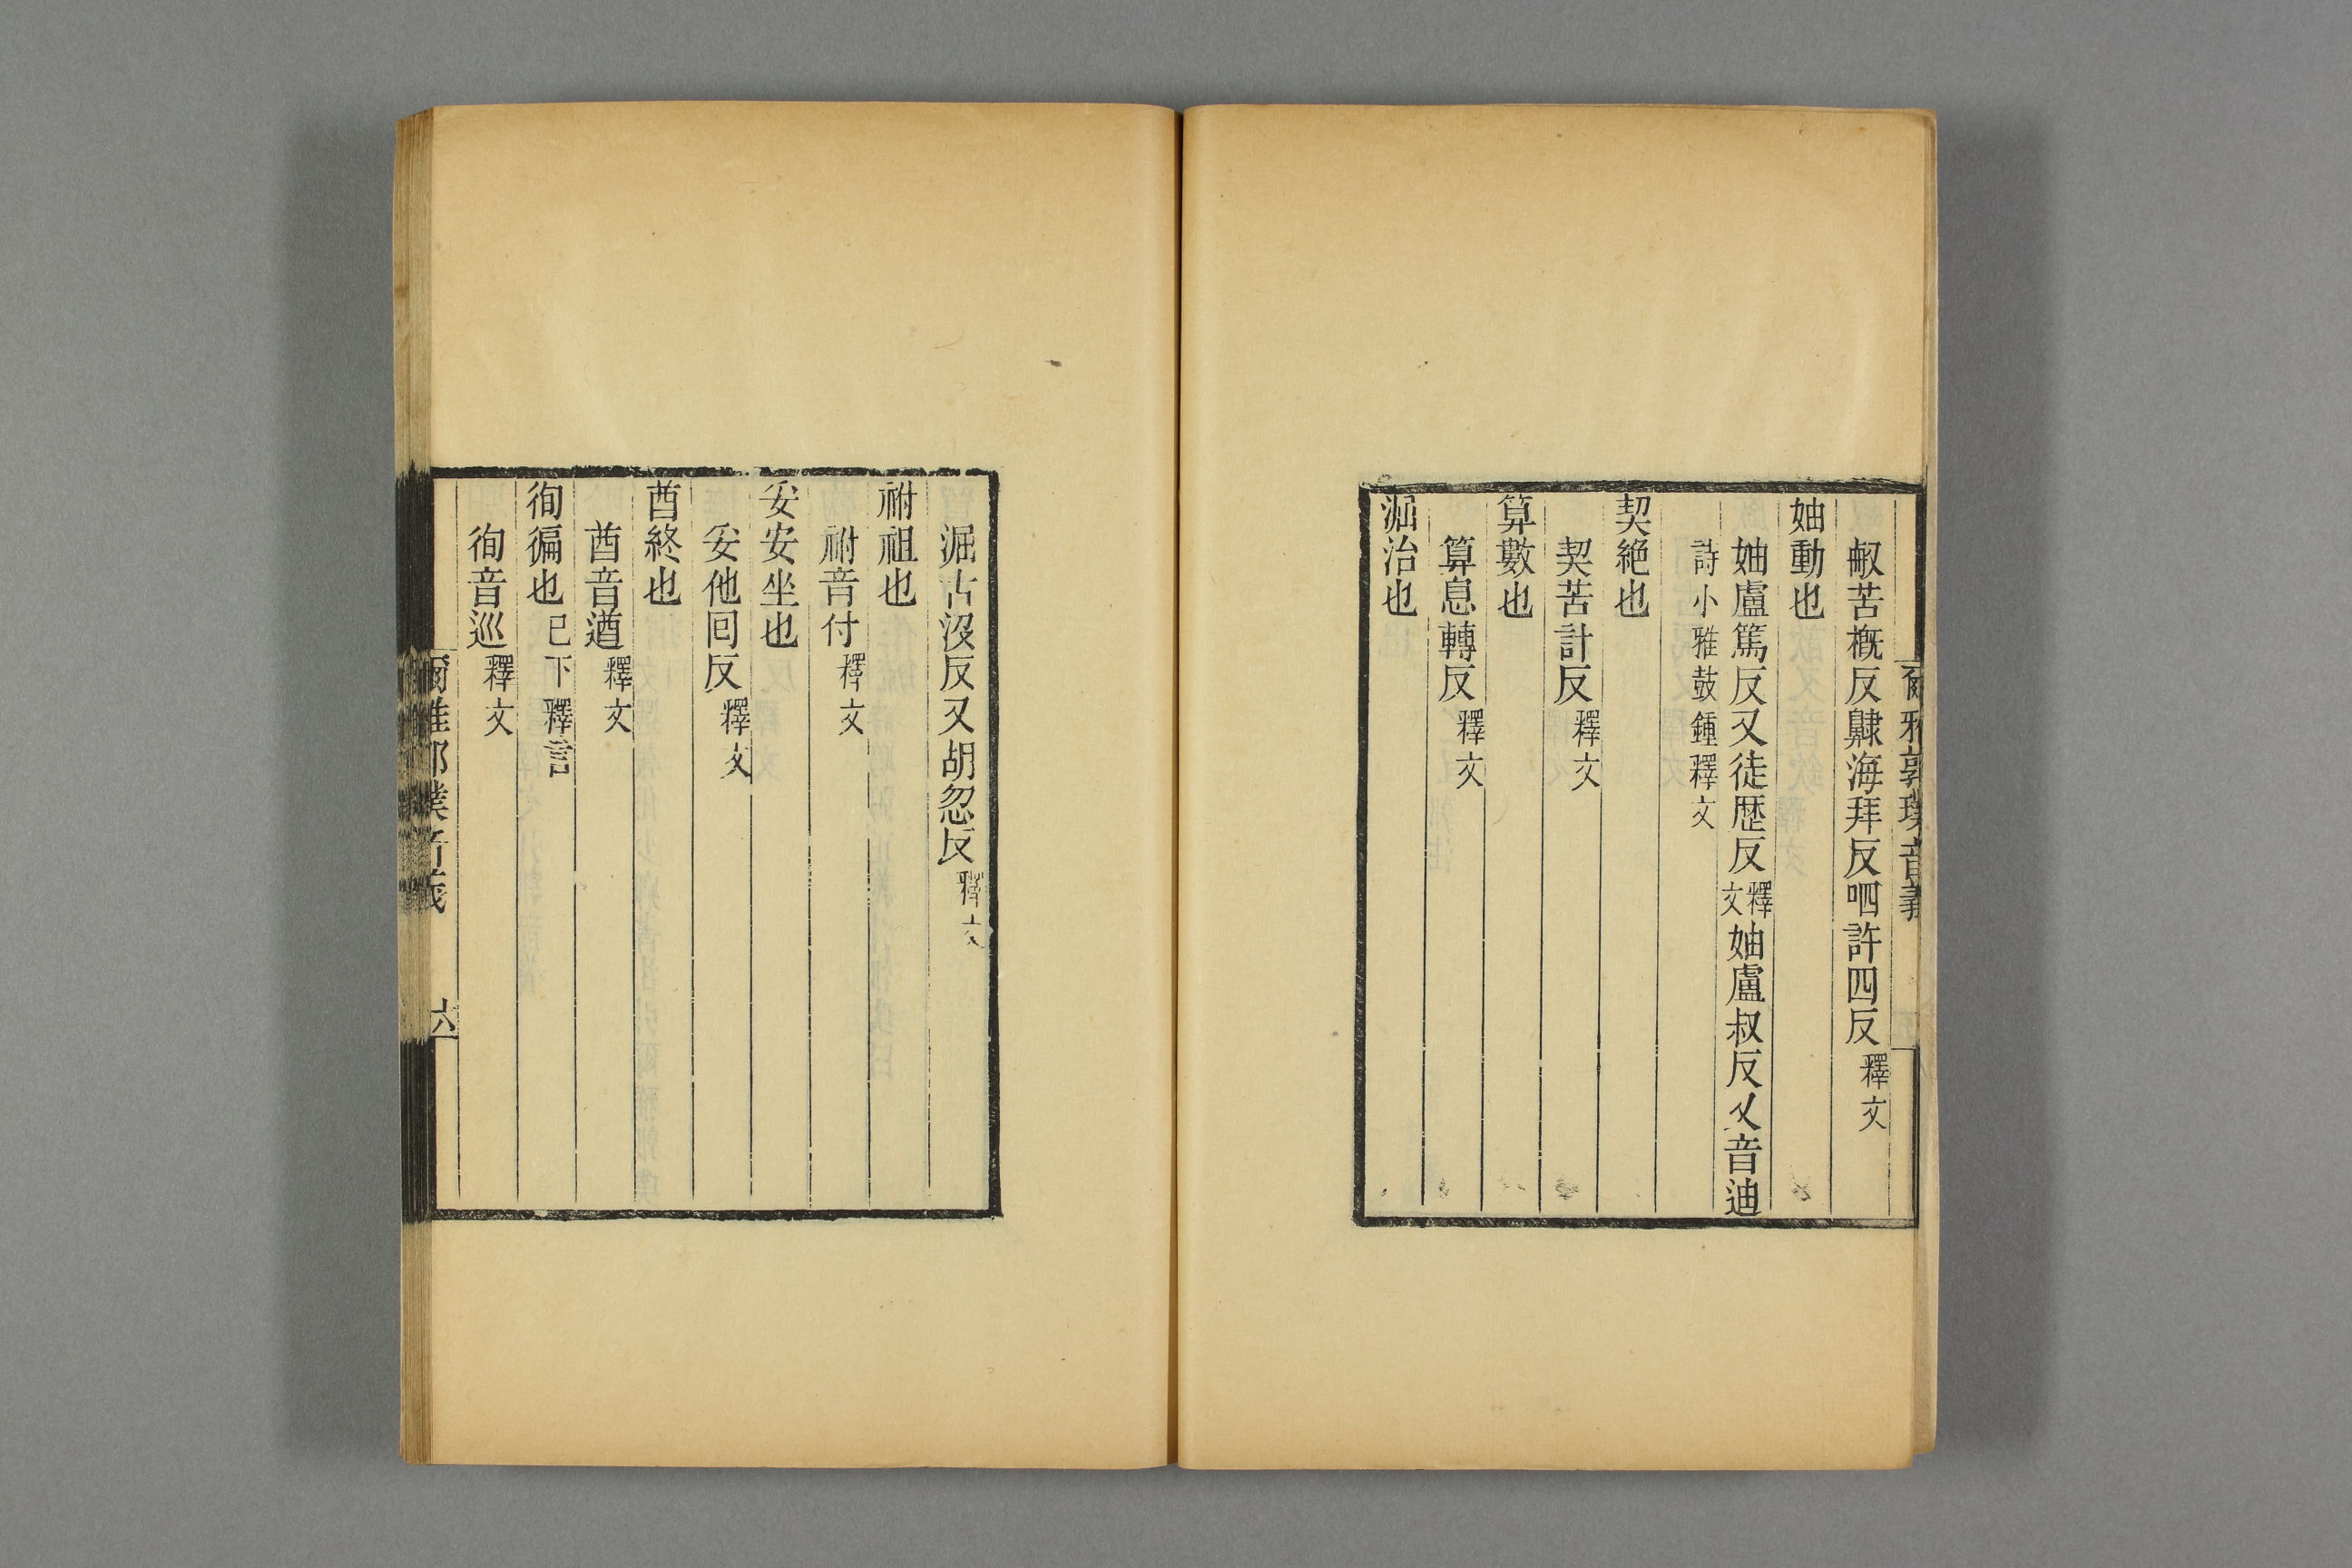 爾雅郭璞音義
㕢苦槪反齂海拜反呬許四反釋文
妯動也
妯盧篤反又徒歴反釋文妯盧叔反又音迪
詩小雅鼓鍾釋文
契絕也
契苦計反釋文
算數也
算息轉反釋文
淈治也
淈古沒反又胡忽反釋文
祔祖也
祔音付釋文
妥安坐也
妥他回反釋文
酋終也
酋音遒釋文
徇徧也已下釋言
徇音巡釋文
爾雅郭璞音義 六